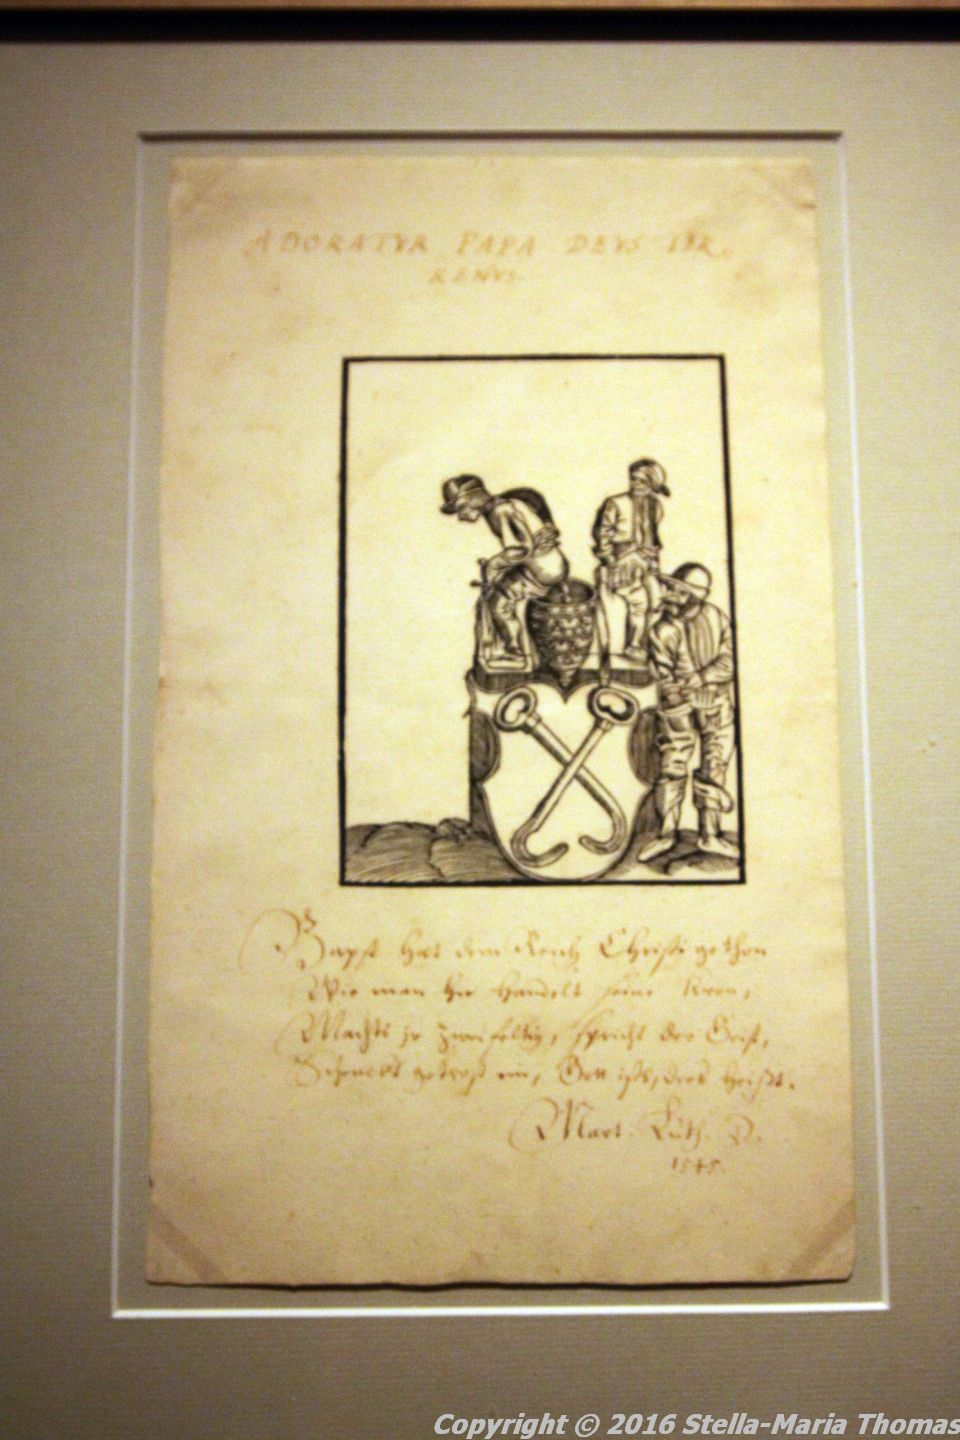 ADORATVR PAPA DEVS TER-
RENVS.
Bapst hat dem Reich Christi gethon
Wie man hie handelt seine Kron,
Machts jr zweifeltig, spricht der Geist,
Schenckt getrost ein, Gott ists, ders heisst.
Mart. Luth. D.
1545.
Copyright © 2016 Stella-Maria Thomas